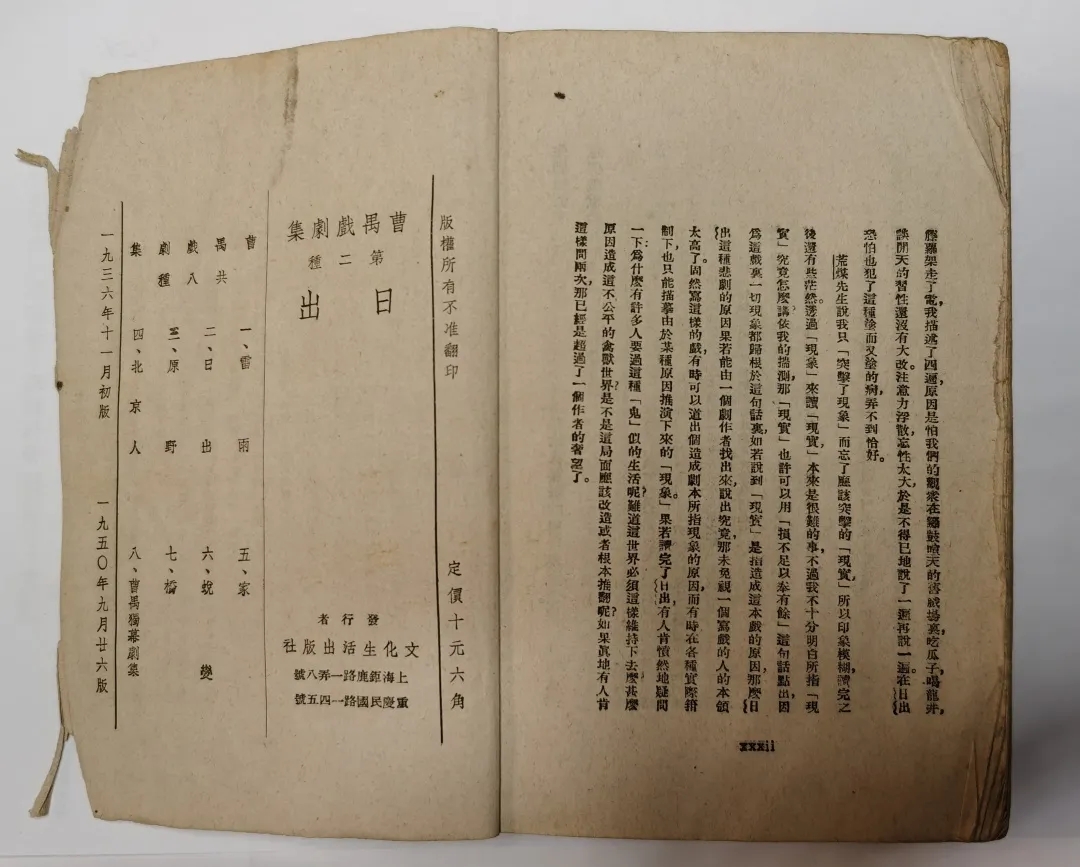 騰霧架走了電,我描述了四遍,原因是怕我們的觀衆在鑼鼓喧天的舊戲場裏,吃瓜子,喝龍井,
談閒天的習性還沒有大改,注意力浮散,忘性太大,於是不得已地說了一遍再說一遍。在日出
恐怕也犯了這種塗而又塗的病,弄不到恰好。
荒煤先生說我只「突擊了現象」而忘了應該突擊的「現實,」所以印象模糊,讀完之
後還有些茫然。透過「現象」來讀「現實,」本來是很難的事,不過我不十分明白所指「現
實」究竟怎麼講,依我的揣測,那「現實」也許可以用「損不足以奉有餘」這句話點出,因
爲這戲裏一切現象都歸根於這句話裏。如若說到「現實」是指造成這本戲的原因,那麼日
出這種悲劇的原因果若能由一個劇作者找出來,說出究竟,那未免視一個寫戲的人的本領
太高了。固然寫這樣的戲,有時可以道出個造成劇本所指現象的原因,而有時在各種實際箝
制下,也只能描摹由於某種原因推演下來的「現象」。果若讀完了日出,有人肯憤然地疑問
一下:爲什麼有許多人要過這種「鬼」似的生活呢?難道這世界必須這樣維持下去麼?甚麼
原因造成這不公平的禽獸世界?是不是這局面應該改造或者根本推翻呢?如果眞地有人肯
這樣問兩次,那已經是超過了一個作者的奢望了。
xxxii
版權所有不准翻印
定價十元六角
曹禺戲劇集
第二種
日出
發行者
文化生活出版社
上海鉅鹿路一弄八號
重慶民國路一四五號
曹禺戲劇集
共八種
一、雷雨
二、日出
三、原野
四、北京人
五、家
六、蛻變
七、橋
八、曹禺獨幕劇集
一九三六年十一月初版
一九五〇年九月廿六版